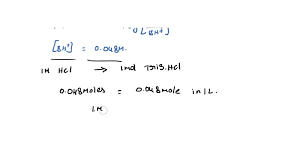 [BH⁺] = 0.048M.
1M HCl → 1mol Tris.HCl
0.048moles = 0.048mole in 1L.
1M